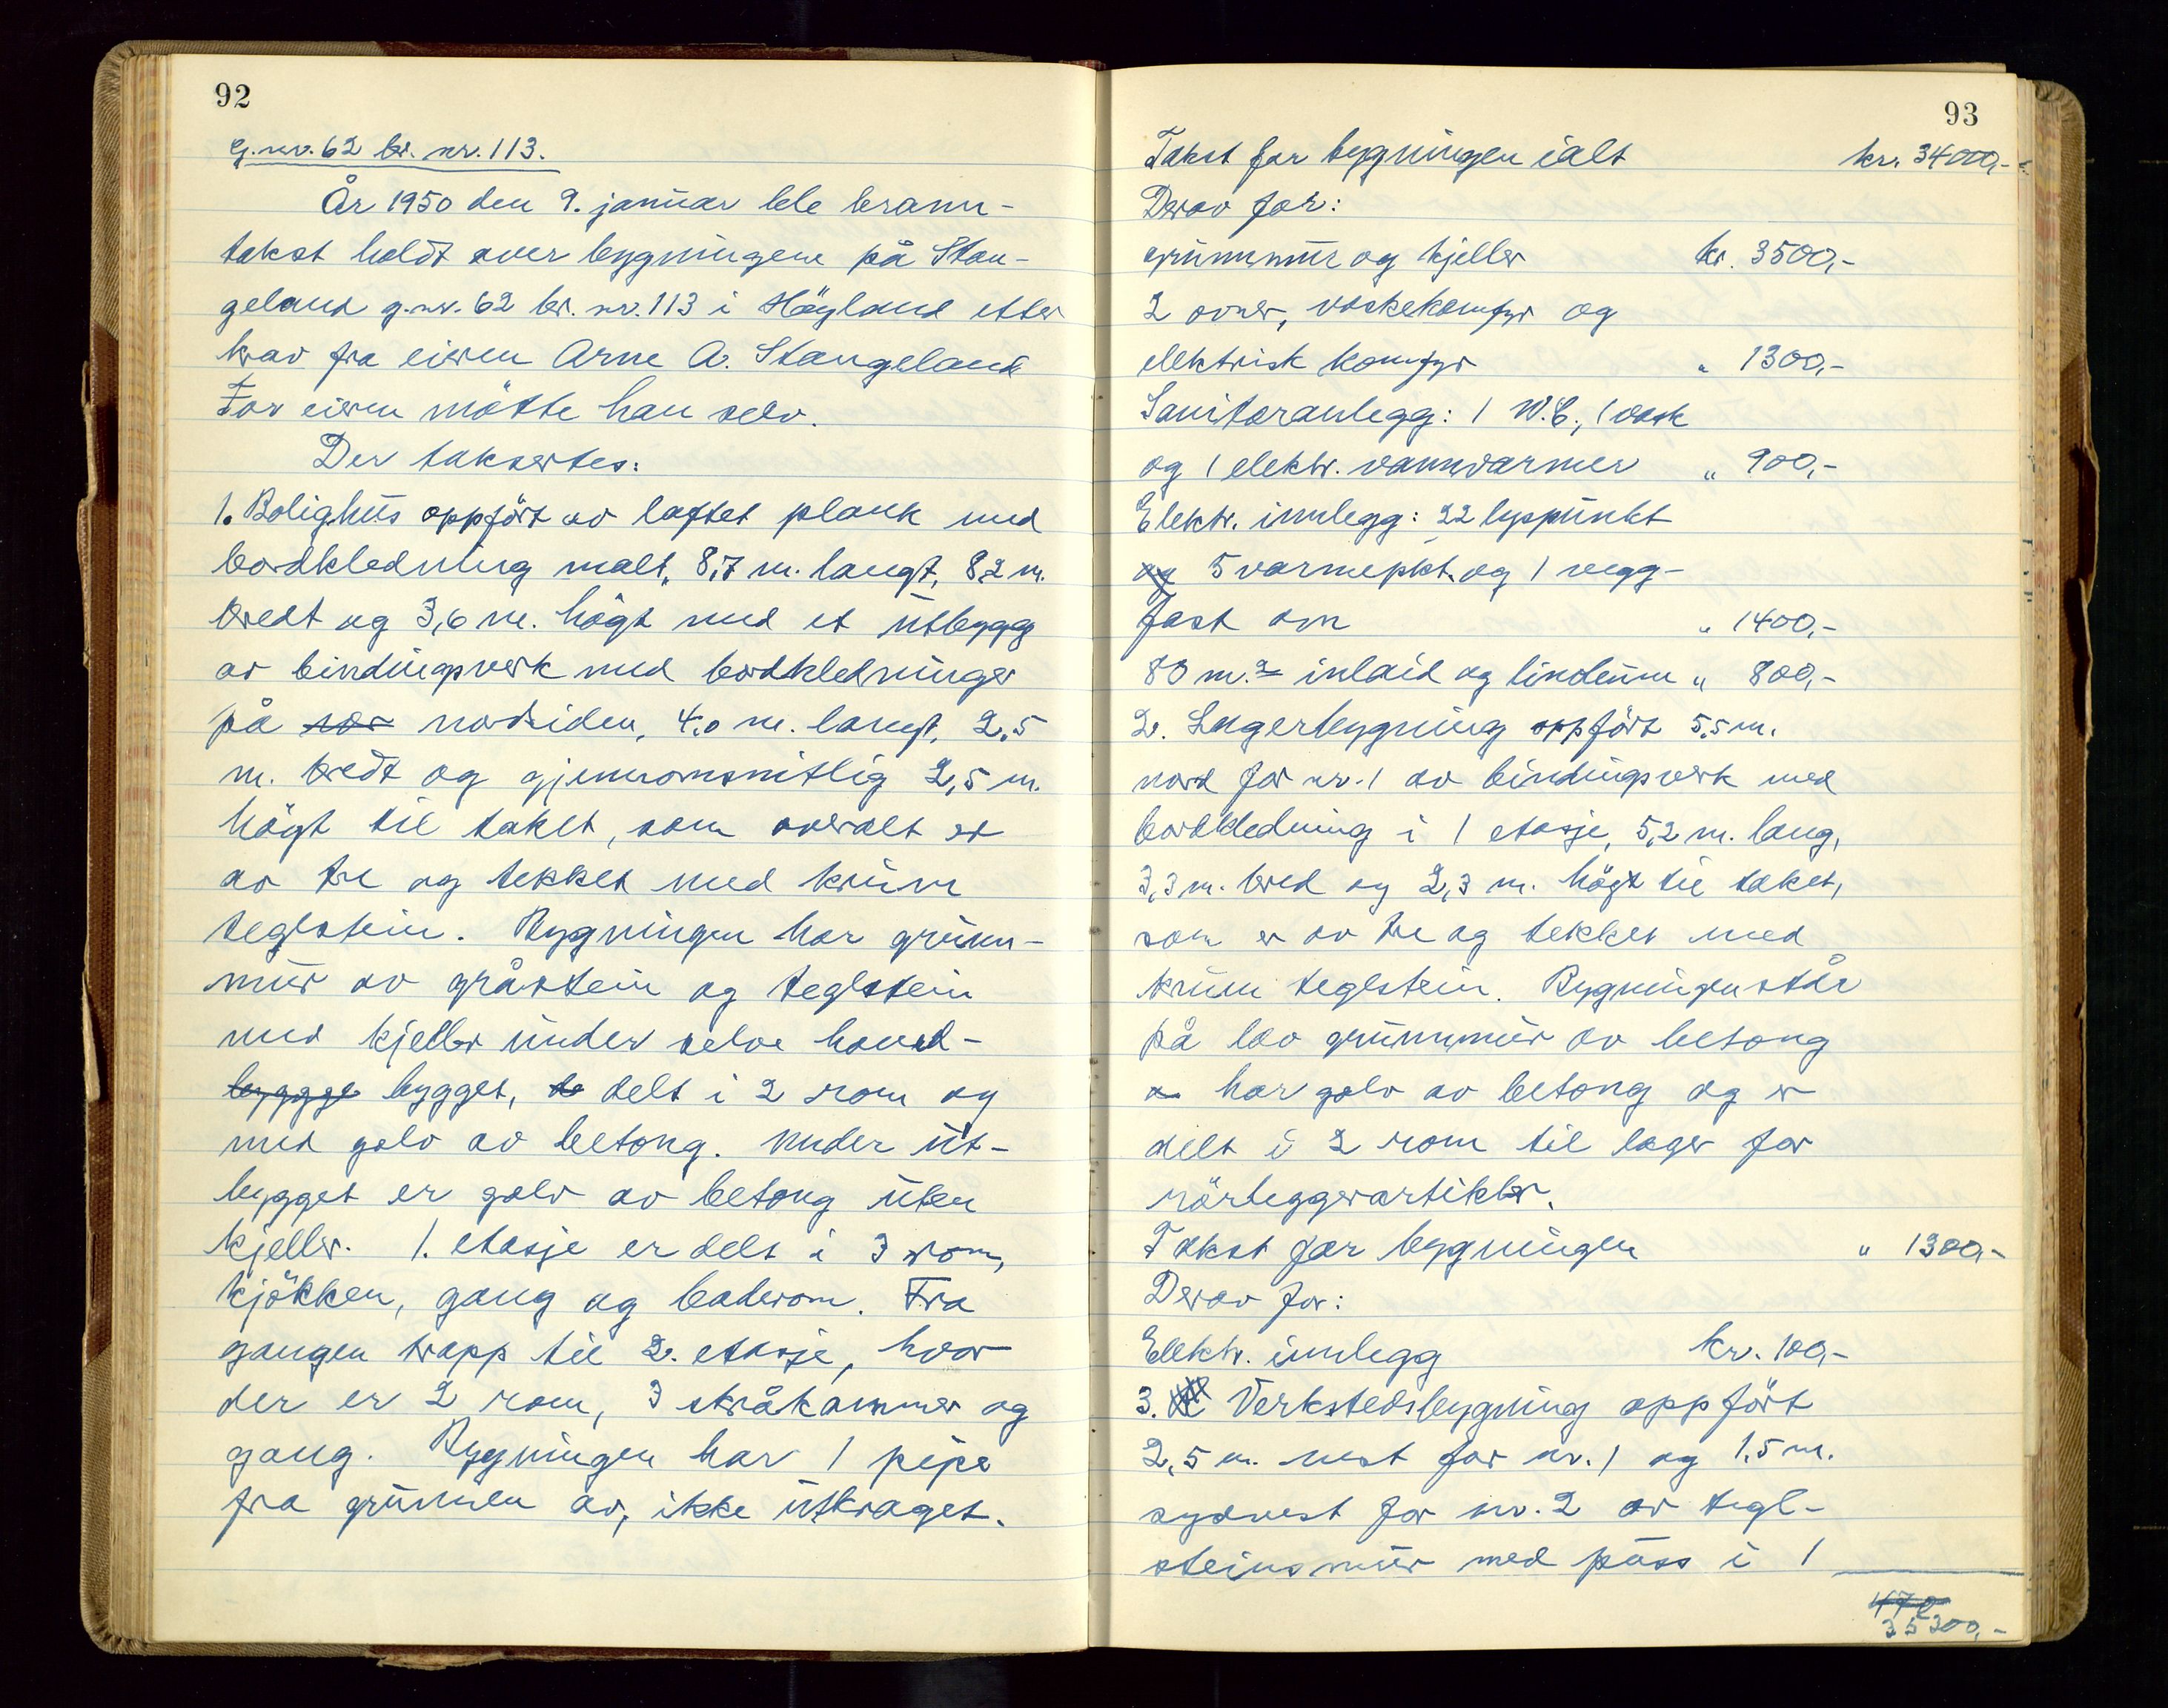 92
G.nr. 62 br. nr. 113.
År 1950 den 9. januar ble brann-
takst holdt over bygningene på Stan-
geland g.nr. 62 br. nr. 113 i Höyland etter
krav fra eieren Arne A. Stangeland
For eieren mötte han selv.
Der taksertes:
1. Bolighus oppfört av laftet plank med
bordkledning malt, 8,7 m. langt, 8,2 m.
bredt og 3,6 m. högt med et utbygg
av bindingsverk med bordkledninger
på sør nordsiden, 4,0 m. langt, 2,5
m. bredt og gjennomsnitlig 2,5 m.
högt til taket, som overalt er
av tre og tekket med krum
teglstein. Bygningen har grunn-
mur av gråstein og teglstein
med kjeller under selve hoved-
byggge bygget, de delt i 2 rom og
med golv av betong. Under ut-
bygget er golv av betong uten
kjeller. 1. etasje er delt i 3 rom,
kjökken, gang og baderom. Fra
gangen trapp til 2. etasje, hvor
der er 2 rom, 3 skråkammer og
gang. Bygningen har 1 pipe
fra grunnen av, ikke utkraget.
93
Takst for bygningen ialt kr. 34000,-
Derav for:
grunnmur og kjeller kr. 3500,-
2 ovner, vaskekomfyr og
elektrisk komfyr " 1300,-
Sanitæranlegg: 1 W.C., 1 vask
og 1 elektr. vannvarmer " 900,-
Elektr. innlegg: 22 lyspunkt
og 5 varmepkt. og 1 vegg-
fast ovn " 1400,-
80 m.2 inlaid og linoleum " 800,-
2. Lagerbygning oppfört 5,5 m.
nord for nr. 1 av bindingsverk med
bordkledning i 1 etasje, 5,2 m. lang,
3,3 m. bred og 2,3 m. högt til taket,
som er av tre og tekket med
krum teglstein. Bygningen står
på lav grunnmur av betong
har golv av betong og er
delt i 2 rom til lager for
rörleggerartikler.
Takst for bygningen " 1300,-
Derav for:
Elektr. innlegg kr. 100,-
3. Verkstedsbygning oppfört
2,5 m. vest for nr. 1 og 1,5 m.
sydvest for nr. 2 av tegl-
steinsmur med puss i 1
35300,-